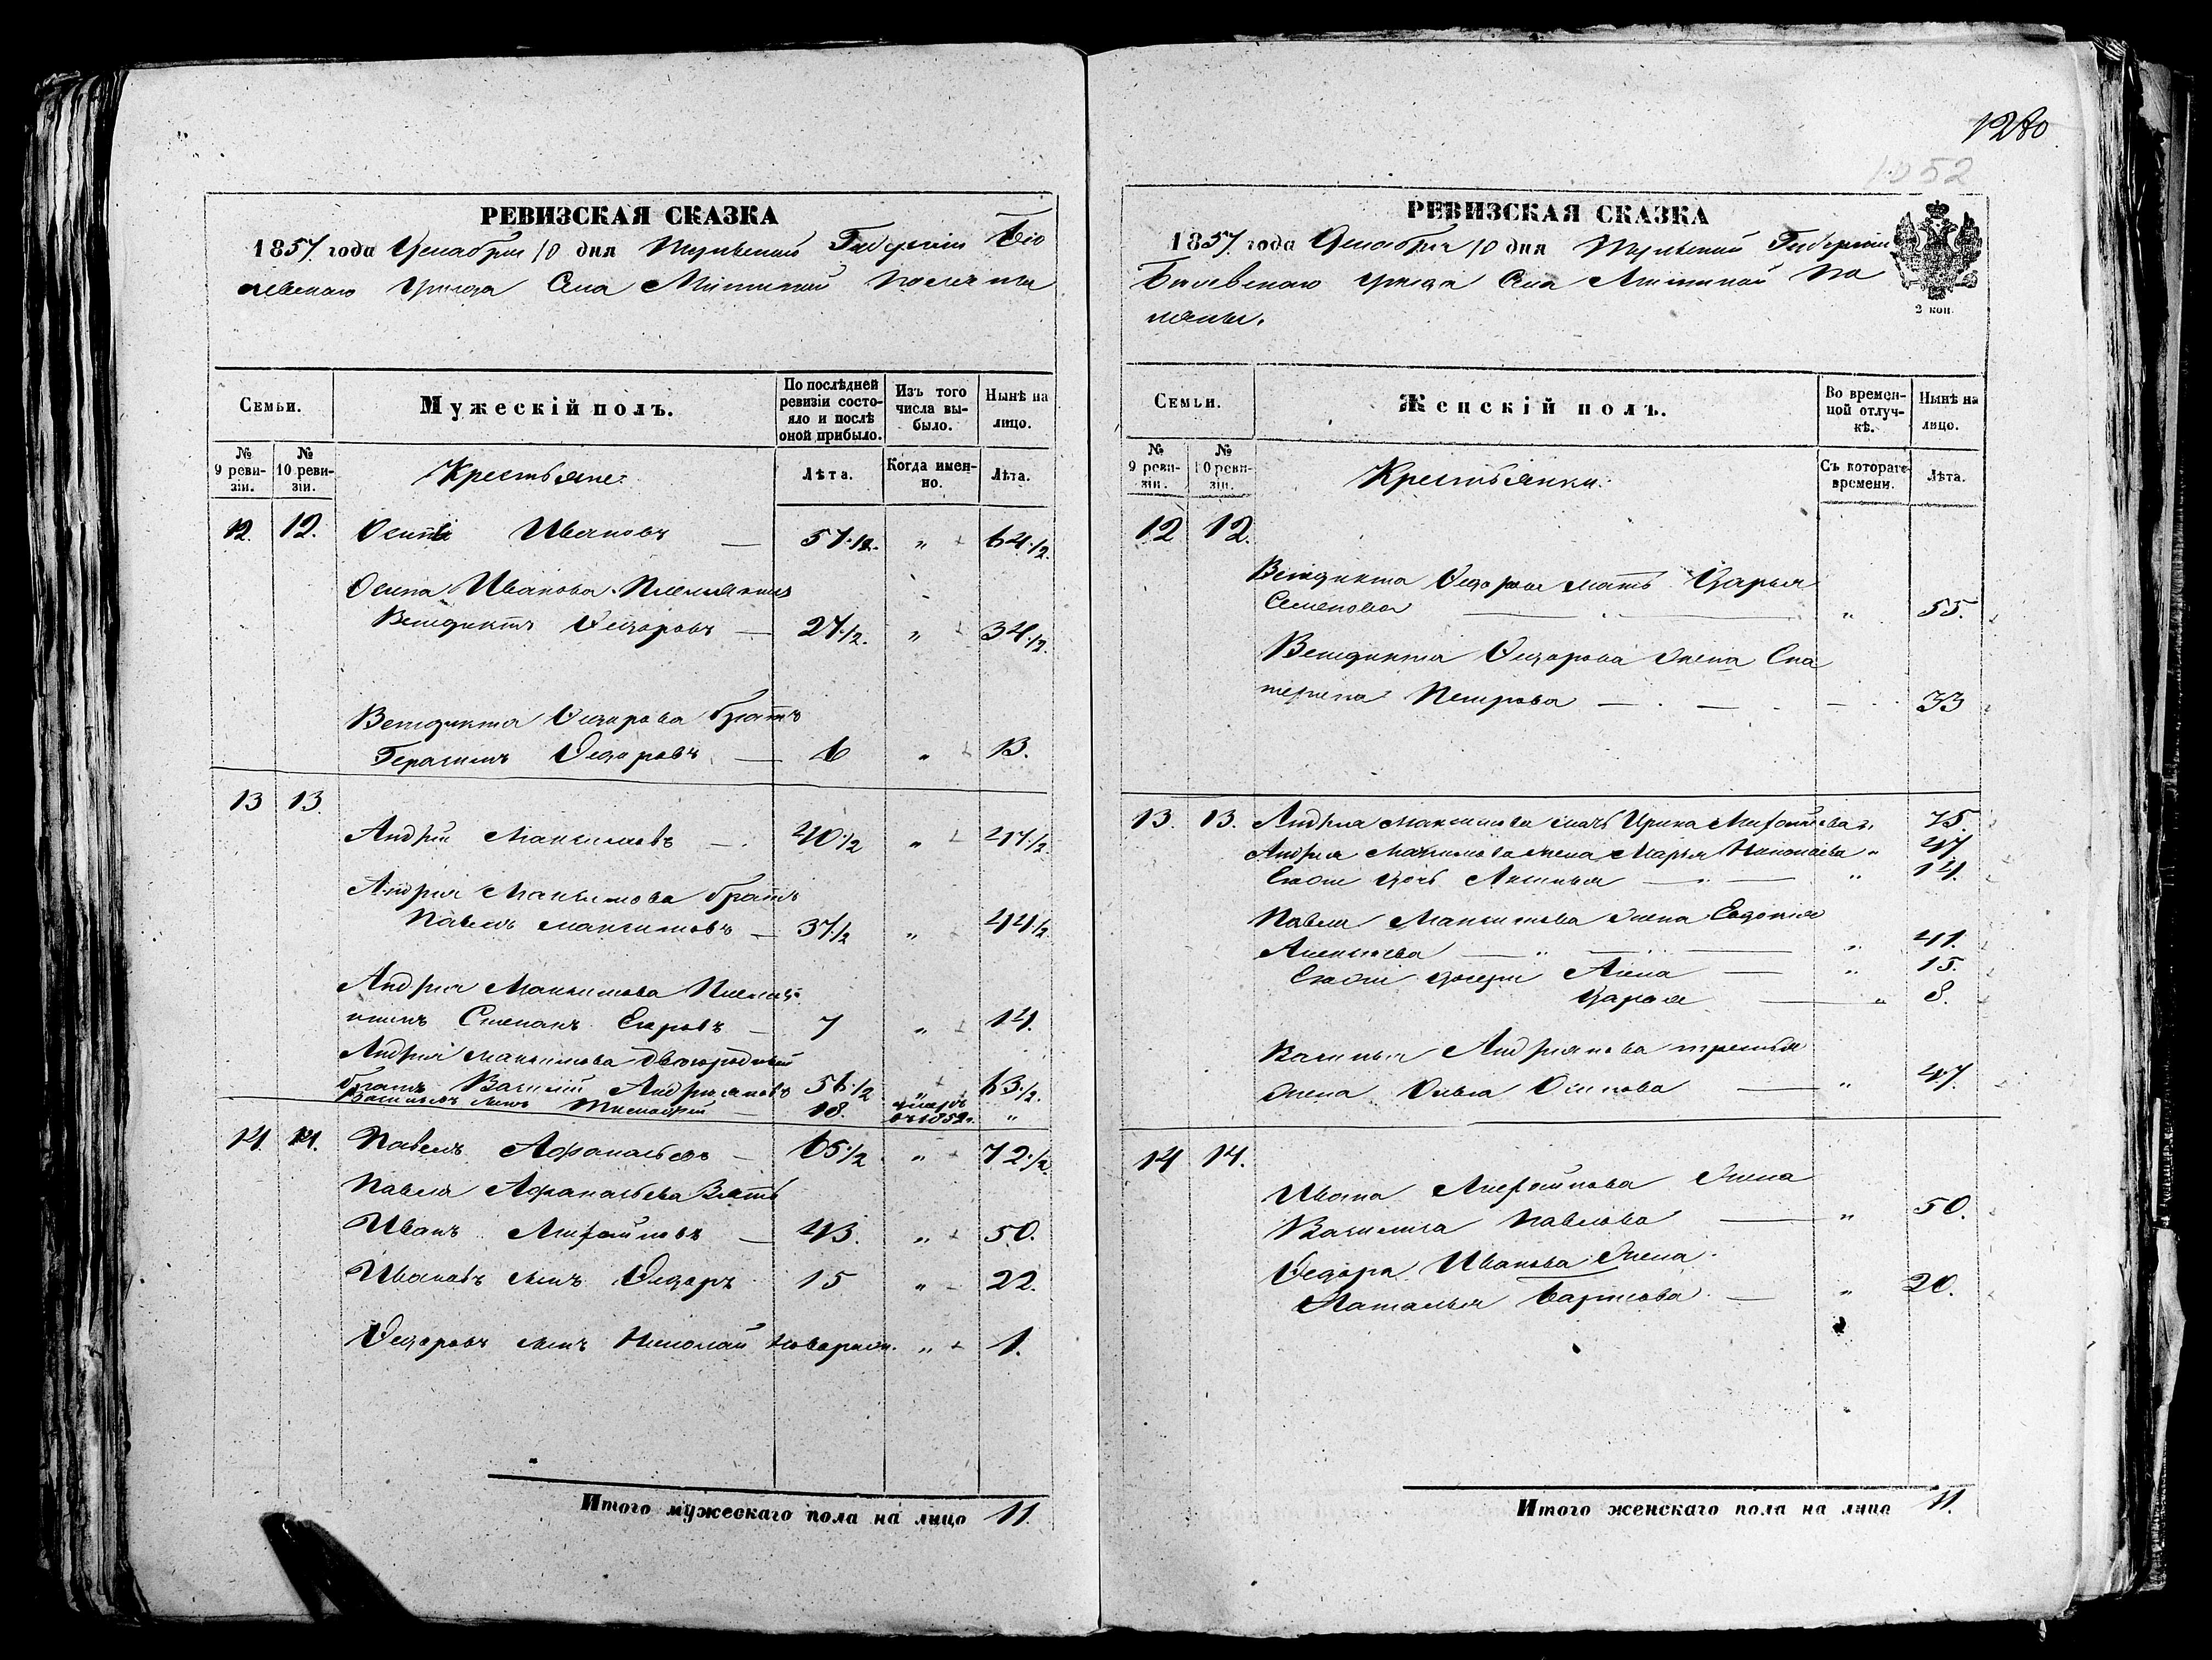 РЕВИЗСКАЯ СКАЗКА
1857 года Декабря 10 дня Тульской Губерніи Бѣ
левскаго уѣзда Села
Семьи.
Мужескій полъ.
По послѣдней ревизіи состояло и послѣ оной прибыло.
Изъ того числа выбыло.
Нынѣ на лицо.
№ 9 ревизіи.
№ 10 ревизіи.
Крестьяне.
Лѣта.
Когда именно.
Лѣта.
12. 12. Осипъ Ивановъ — 57 1/2. „ 64 1/2.
Осипа Иванова Племянникъ
Венедиктъ Федоровъ — 27 1/2. „ 34 1/2.
Венедикта Федорова братъ
Герасимъ Федоровъ — 6 „ 13.
13 13.
Андрей Максимовъ — 40 1/2 „ 47 1/2.
Андрея Максимова братъ
Павелъ Максимовъ — 37 1/2 „ 44 1/2.
Андрея Максимова Племян
никъ Степанъ Егоровъ — 7 „ 14.
Андрея Максимова двоюродный
братъ Василій Андреяновъ 56 1/2 „ 63 1/2.
Васильевъ сынъ Тимофей — 18. умеръ въ 1852 г. „
14. 14. Павелъ Афанасьевъ — 65 1/2 „ 72 1/2.
Павла Афанасьева Зять
Иванъ — 43. „ 50.
Ивановъ сынъ Федоръ 15 „ 22.
Федоровъ сынъ Николай новорожд. „ 1.
Итого мужескаго пола на лицо 11.
1052
РЕВИЗСКАЯ СКАЗКА
1857 года Декабря 10 дня Тульской Губерніи
Белевскаго уѣзда Села
2 коп.
Семьи.
Женскій полъ.
Во временной отлучкѣ.
Нынѣ на лицо.
№ 9 ревизіи.
№ 10 ревизіи.
Крестьянки.
Съ котораго времени.
Лѣта.
12 12.
Венедикта Федорова мать Дарья
Семенова — „ 55.
Венедикта Федорова жена Ека
терина Петрова — 33
13. 13. Андрея Максимова мать Ирина „ 75.
Андрея Максимова жена Марья Николаева „ 47
Его дочь Аксинья — „ 14.
Павла Максимова жена Евдокия
Алексѣева — „ 41.
Его дочери Анна — „ 15.
Дарья — „ 8.
Василья Андреянова третья
жена Ольга Осипова — „ 47.
14 14.
Ивана жена
Василиса Павлова — „ 50.
Федора Иванова жена
Наталья Карпова — „ 20.
Итого женскаго пола на лицо 11.